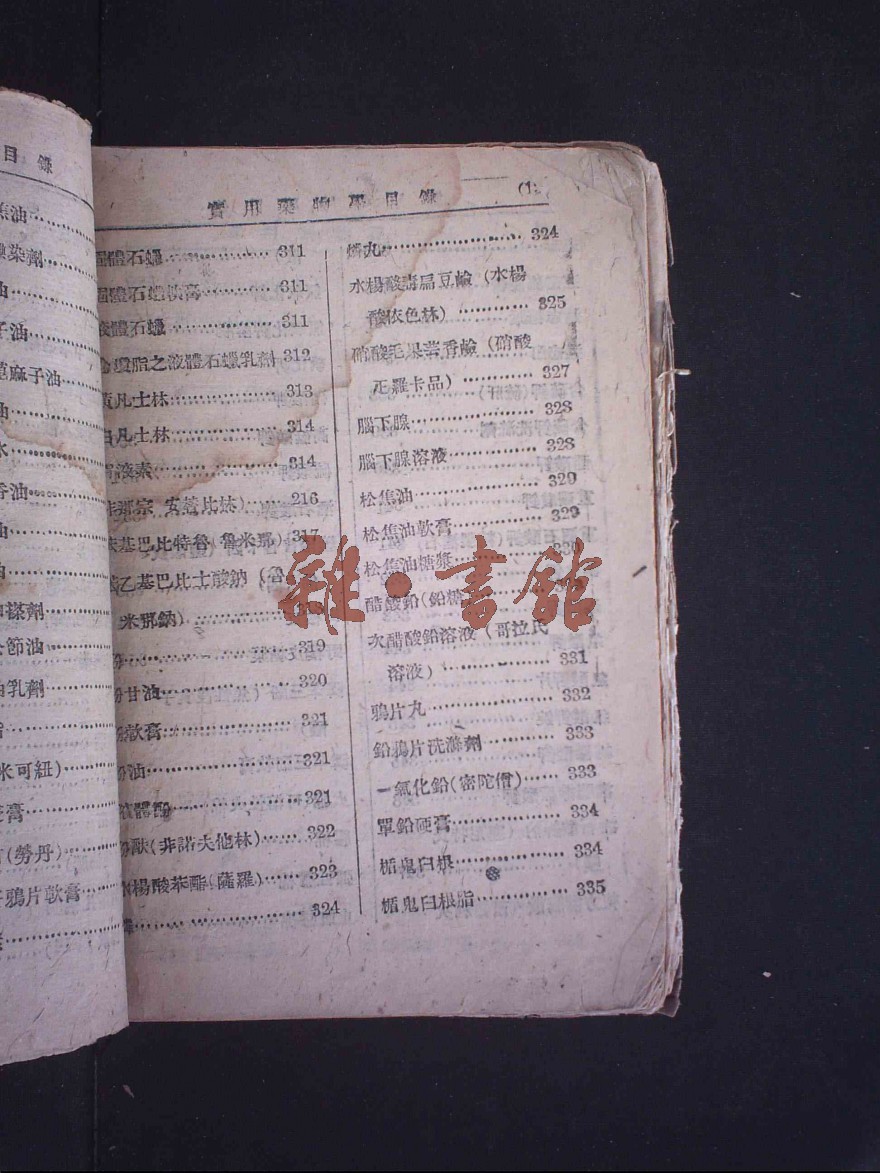 目錄
焦油
染劑
油
子油
蓖麻子油
油
水
香油
油
油
搽劑
節油
油乳劑
脂
米可紐)
膏
(勞丹)
鴉片軟膏
實用藥物學目錄
固體石蠟 311
固體石蠟軟膏 311
液體石蠟 311
瓊脂之液體石蠟乳劑 312
黃凡士林 313
白凡士林 314
液素 314
非那宗 安替比林) 216
基巴比特魯 魯米那) 317
乙基巴比士酸鈉(魯
米那鈉) 318
319
甘油 320
軟膏 321
油 321
液體酚 321
酚酞(非諾夫他林) 322
水楊酸苯酯(薩羅) 323
磷 324
磷丸 324
水楊酸毒扁豆鹼(水楊
酸依色林) 325
硝酸毛果芸香鹼(硝酸
正羅卡品) 327
腦下腺 328
腦下腺溶液 328
松焦油 329
松焦油軟膏 329
松焦油糖漿 330
醋酸鉛(鉛糖
次醋酸鉛溶液(哥拉氏
溶液) 331
鴉片丸 332
鉛鴉片洗滌劑 333
一氧化鉛(密陀僧) 333
單鉛硬膏 334
楯鬼臼根 334
楯鬼臼根脂 335
雜·書館